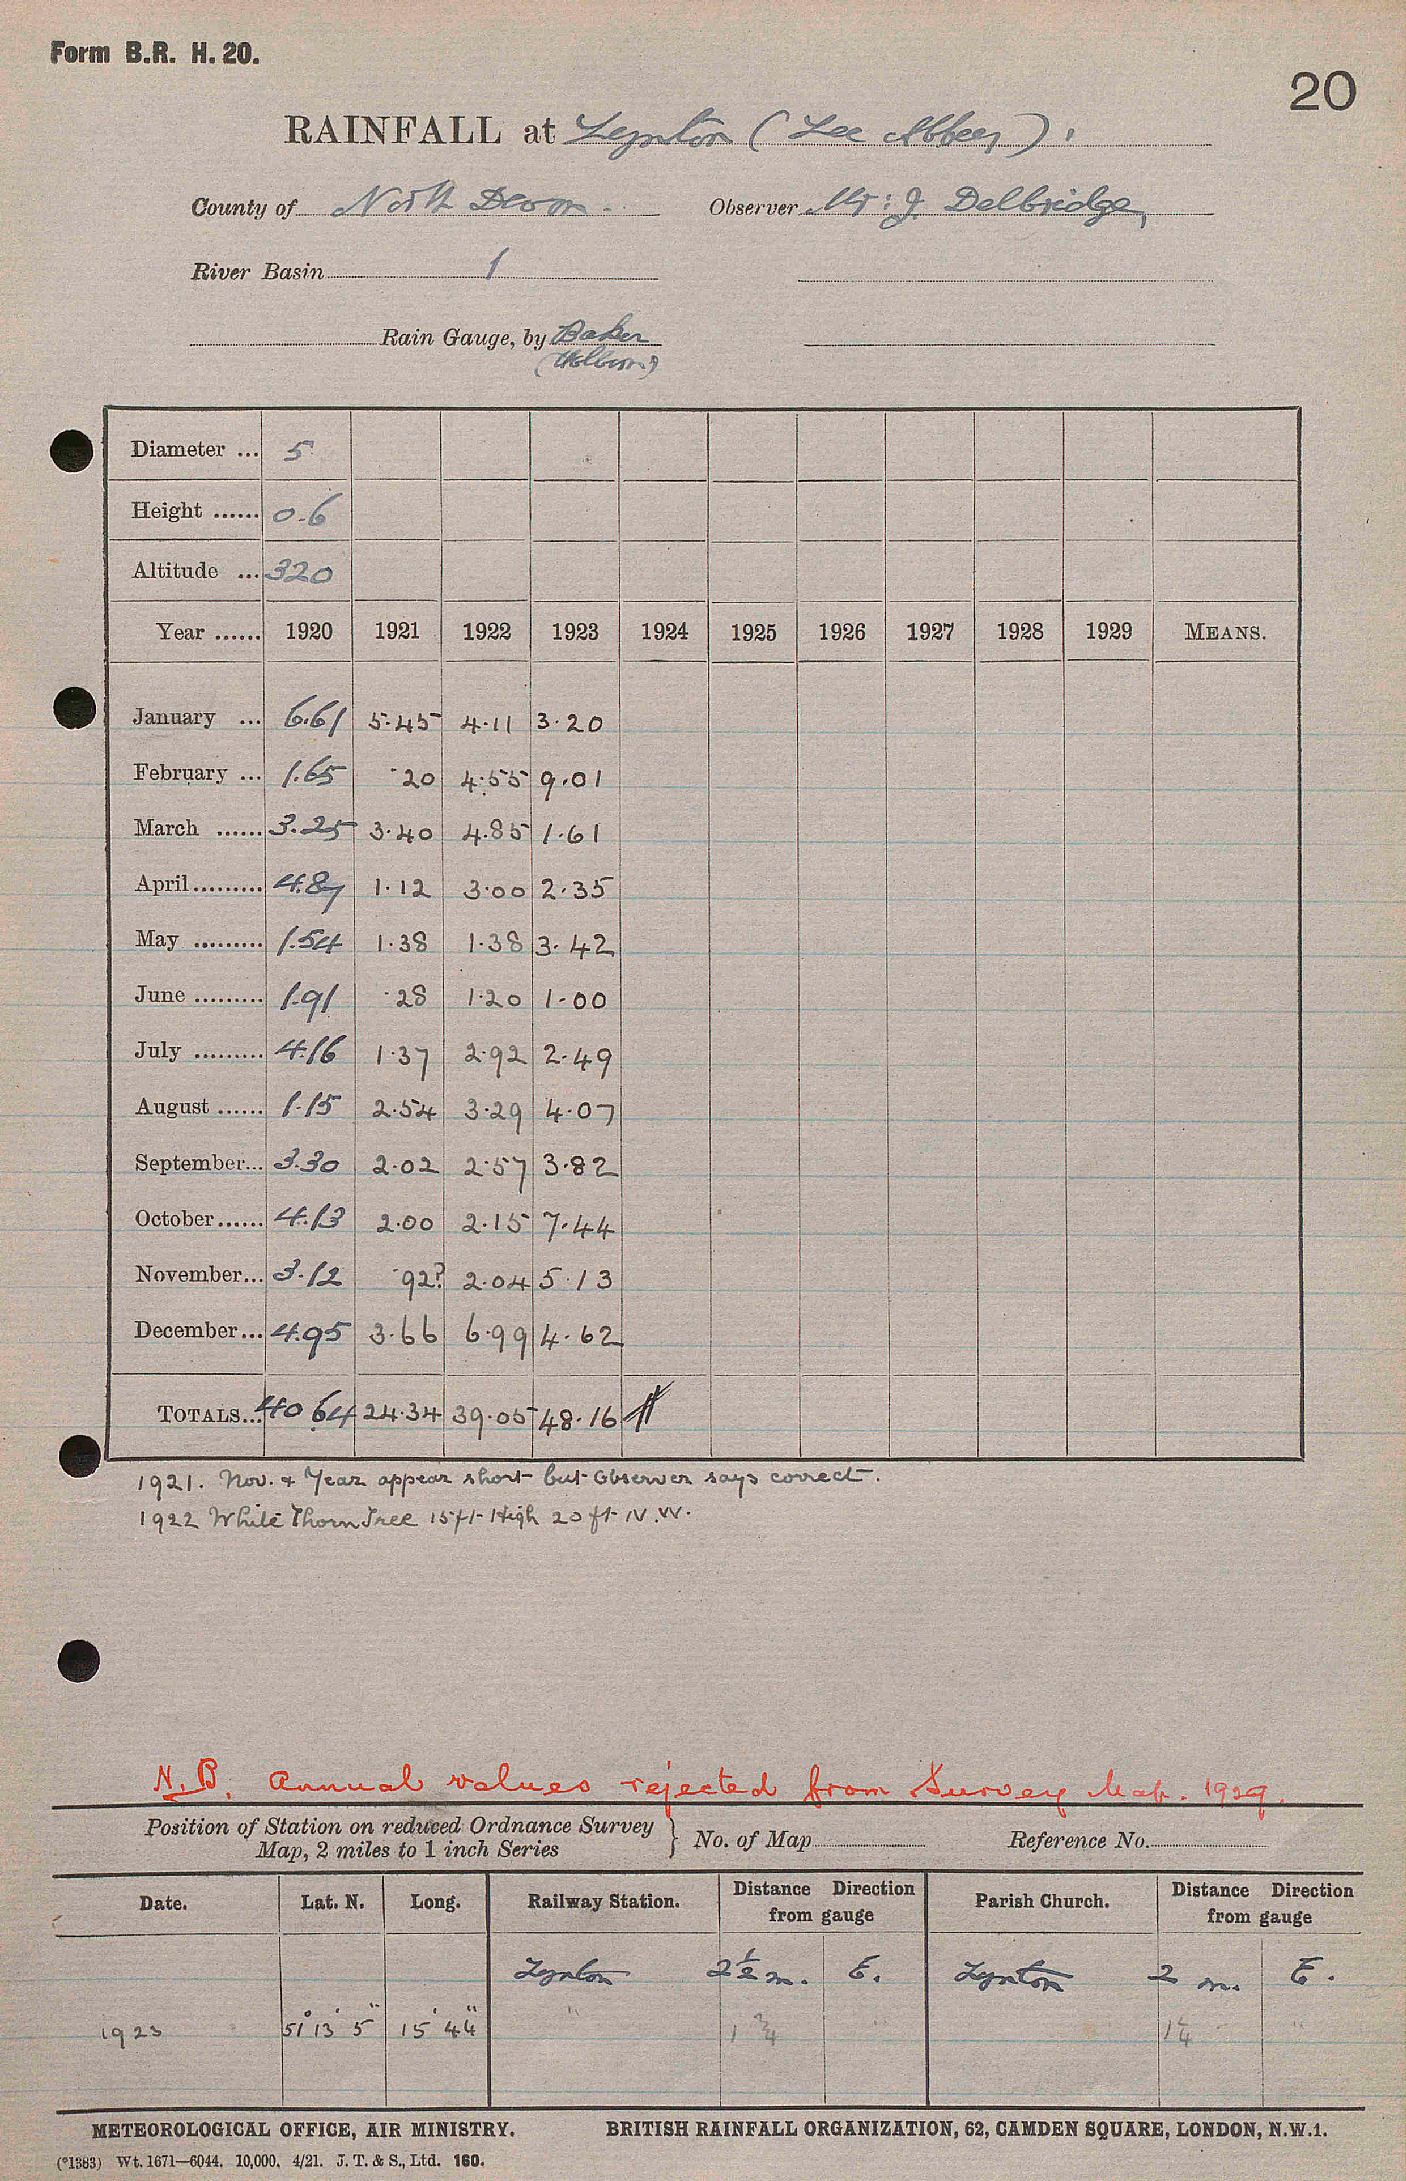 Form B.R. H. 20.
20
RAINFALL at Lynton (Lee Abbey).
County of North Devon. Observer Mr: J. Delbridge,
River Basin 1
Rain Gauge, by Baker
(Holborn)
Diameter ... 5
Height ...... 0.6
Altitude ... 320
Year ...... 1920 1921 1922 1923 1924 1925 1926 1927 1928 1929 MEANS.
January ... 6.61 5.45 4.11 3.20
February ... 1.65 .20 4.55 9.01
March ...... 3.25 3.40 4.85 1.61
April......... 4.87 1.12 3.00 2.35
May ......... 1.54 1.38 1.38 3.42
June ......... 1.91 .28 1.20 1.00
July ......... 4.16 1.37 2.92 2.49
August ...... 1.15 2.54 3.29 4.07
September... 3.30 2.02 2.57 3.82
October...... 4.13 2.00 2.15 7.44
November... 3.12 .92? 2.04 5.13
December... 4.95 3.66 6.99 4.62
TOTALS... 40.64 24.34 39.05 48.16
1921. Nov. + Year appear short but Observer says correct.
1922 White Thorn Tree 15ft High 20ft N.W.
N.B. Annual values rejected from Survey Map. 1929.
Position of Station on reduced Ordnance Survey
Map, 2 miles to 1 inch Series } No. of Map Reference No.
Date. Lat. N. Long. Railway Station. Distance Direction from gauge Parish Church. Distance Direction from gauge
Lynton 2½ m. E. Lynton 2 m. E.
1923 51° 13' 5" 15' 44" " 1¾ " 1¼ "
METEOROLOGICAL OFFICE, AIR MINISTRY. BRITISH RAINFALL ORGANIZATION, 62, CAMDEN SQUARE, LONDON, N.W.1.
(*1383) Wt. 1671—6044. 10,000. 4/21. J. T. & S., Ltd. 160.